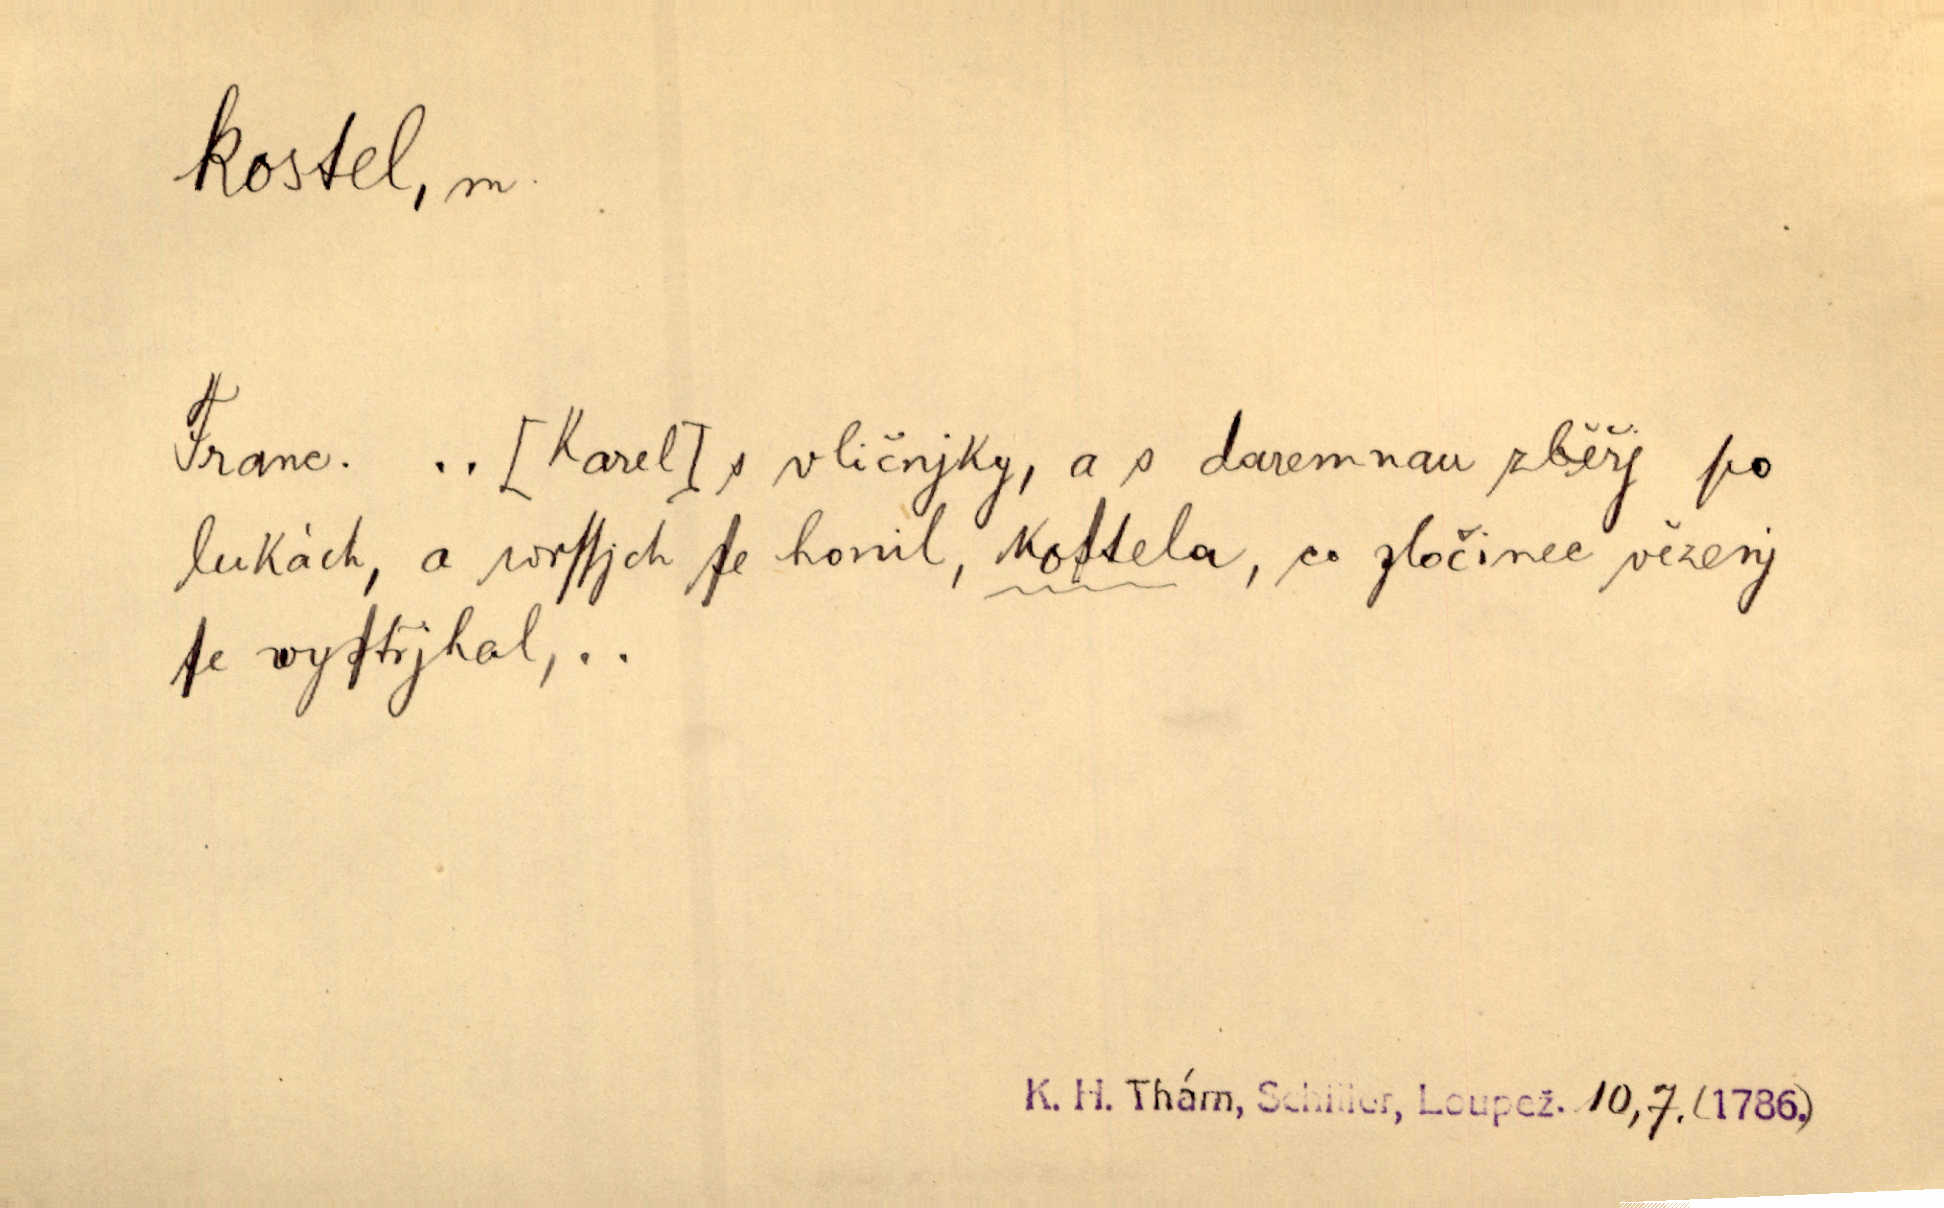 kostel, m.
Franc. .. [Karel] s vličnjky, a s daremnau zběřj po
lukách, a wrſſjch ſe honil, koſtela, co zločinec vězenj
ſe wyſtřjhal, ..
K. H. Thám, Schiller, Loupež. 10, 7. (1786.)